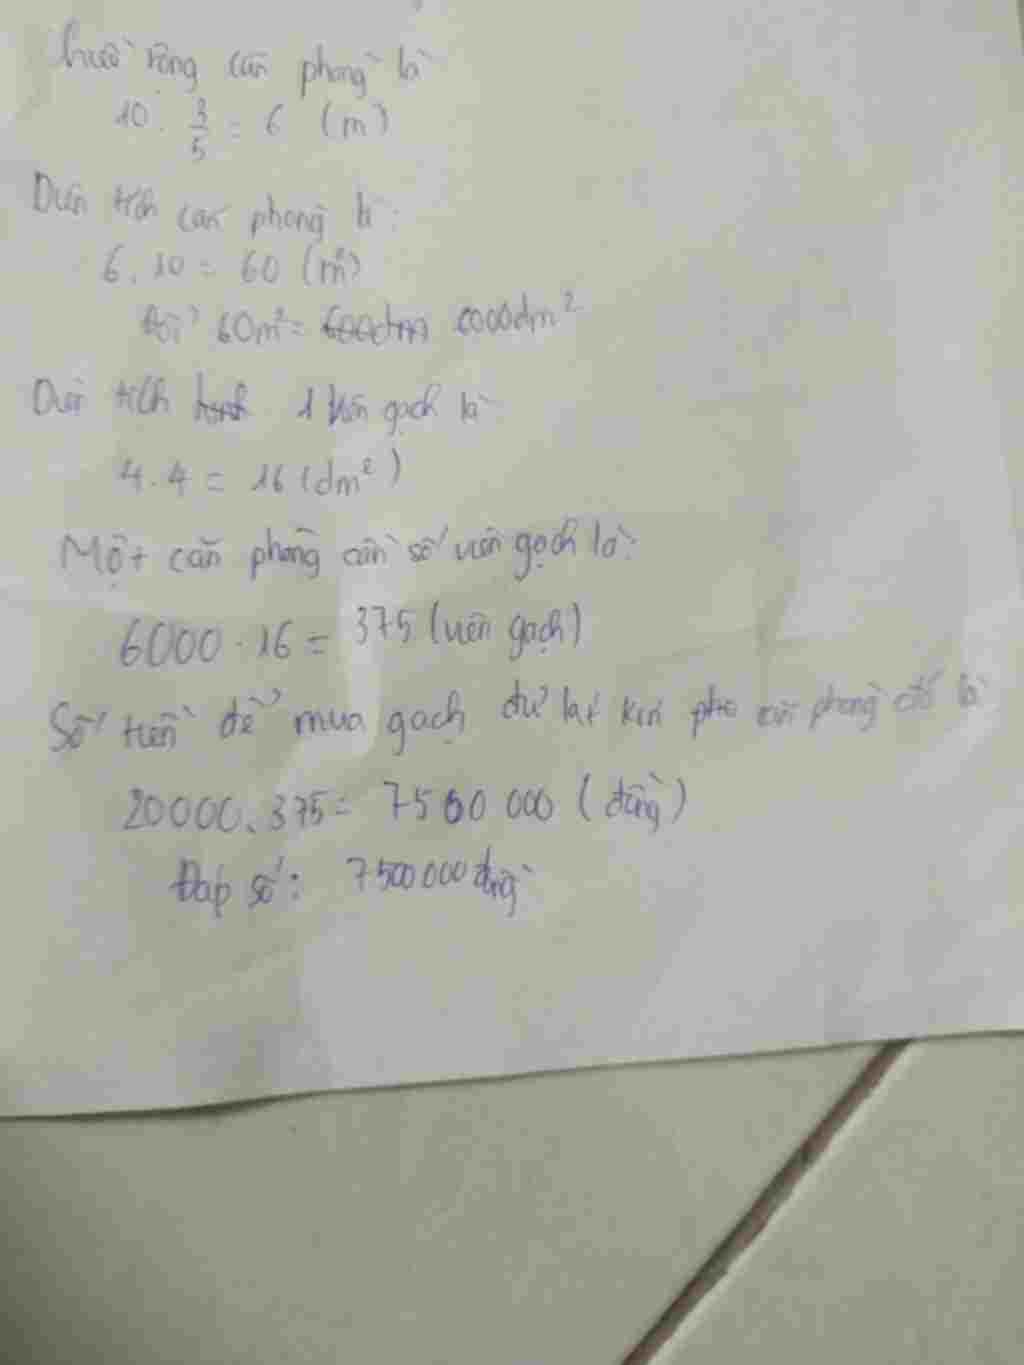 chiều rộng căn phòng là
10 . 3/5 = 6 (m)
Diện tích căn phòng là:
6 . 10 = 60 (m²)
đổi 60m² = 6000dm²
Diện tích 1 viên gạch là
4 . 4 = 16 (dm²)
Một căn phòng cần số viên gạch là:
6000 : 16 = 375 (viên gạch)
Số tiền để mua gạch để lát kín căn phòng đó là
20000 . 375 = 7500 000 (đồng)
Đáp số: 7500000 đồng